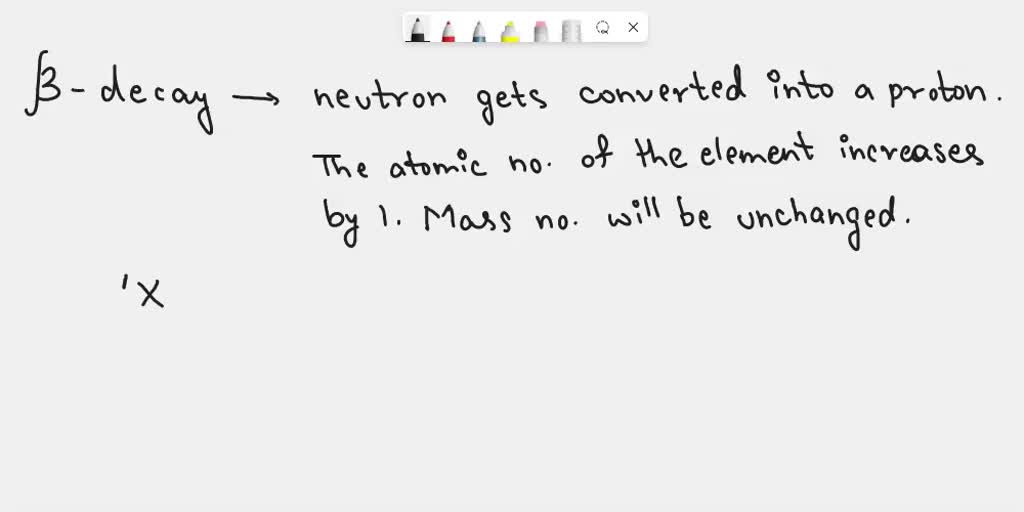 β-decay → neutron gets converted into a proton.
The atomic no. of the element increases
by 1. Mass no. will be unchanged.
'X